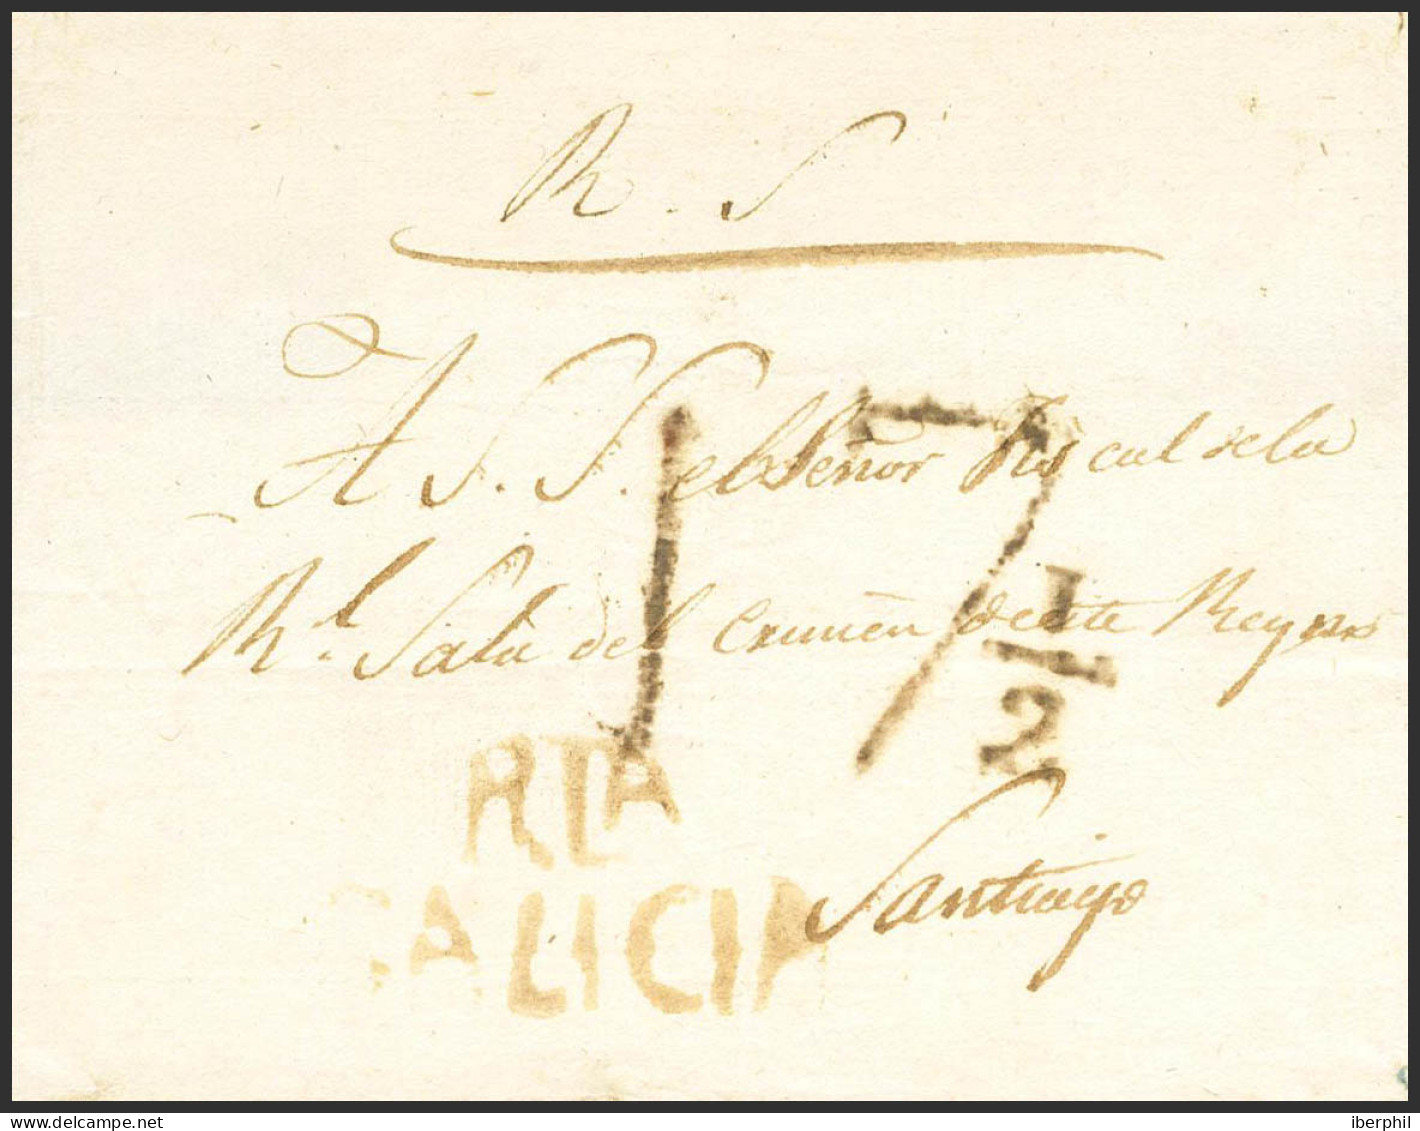 R. S
A S. S. el Señor Fiscal de la
Rl. Sala del Crimen de este Reyno
17 1/2
RTA
GALICIA
Santiago
iberphil